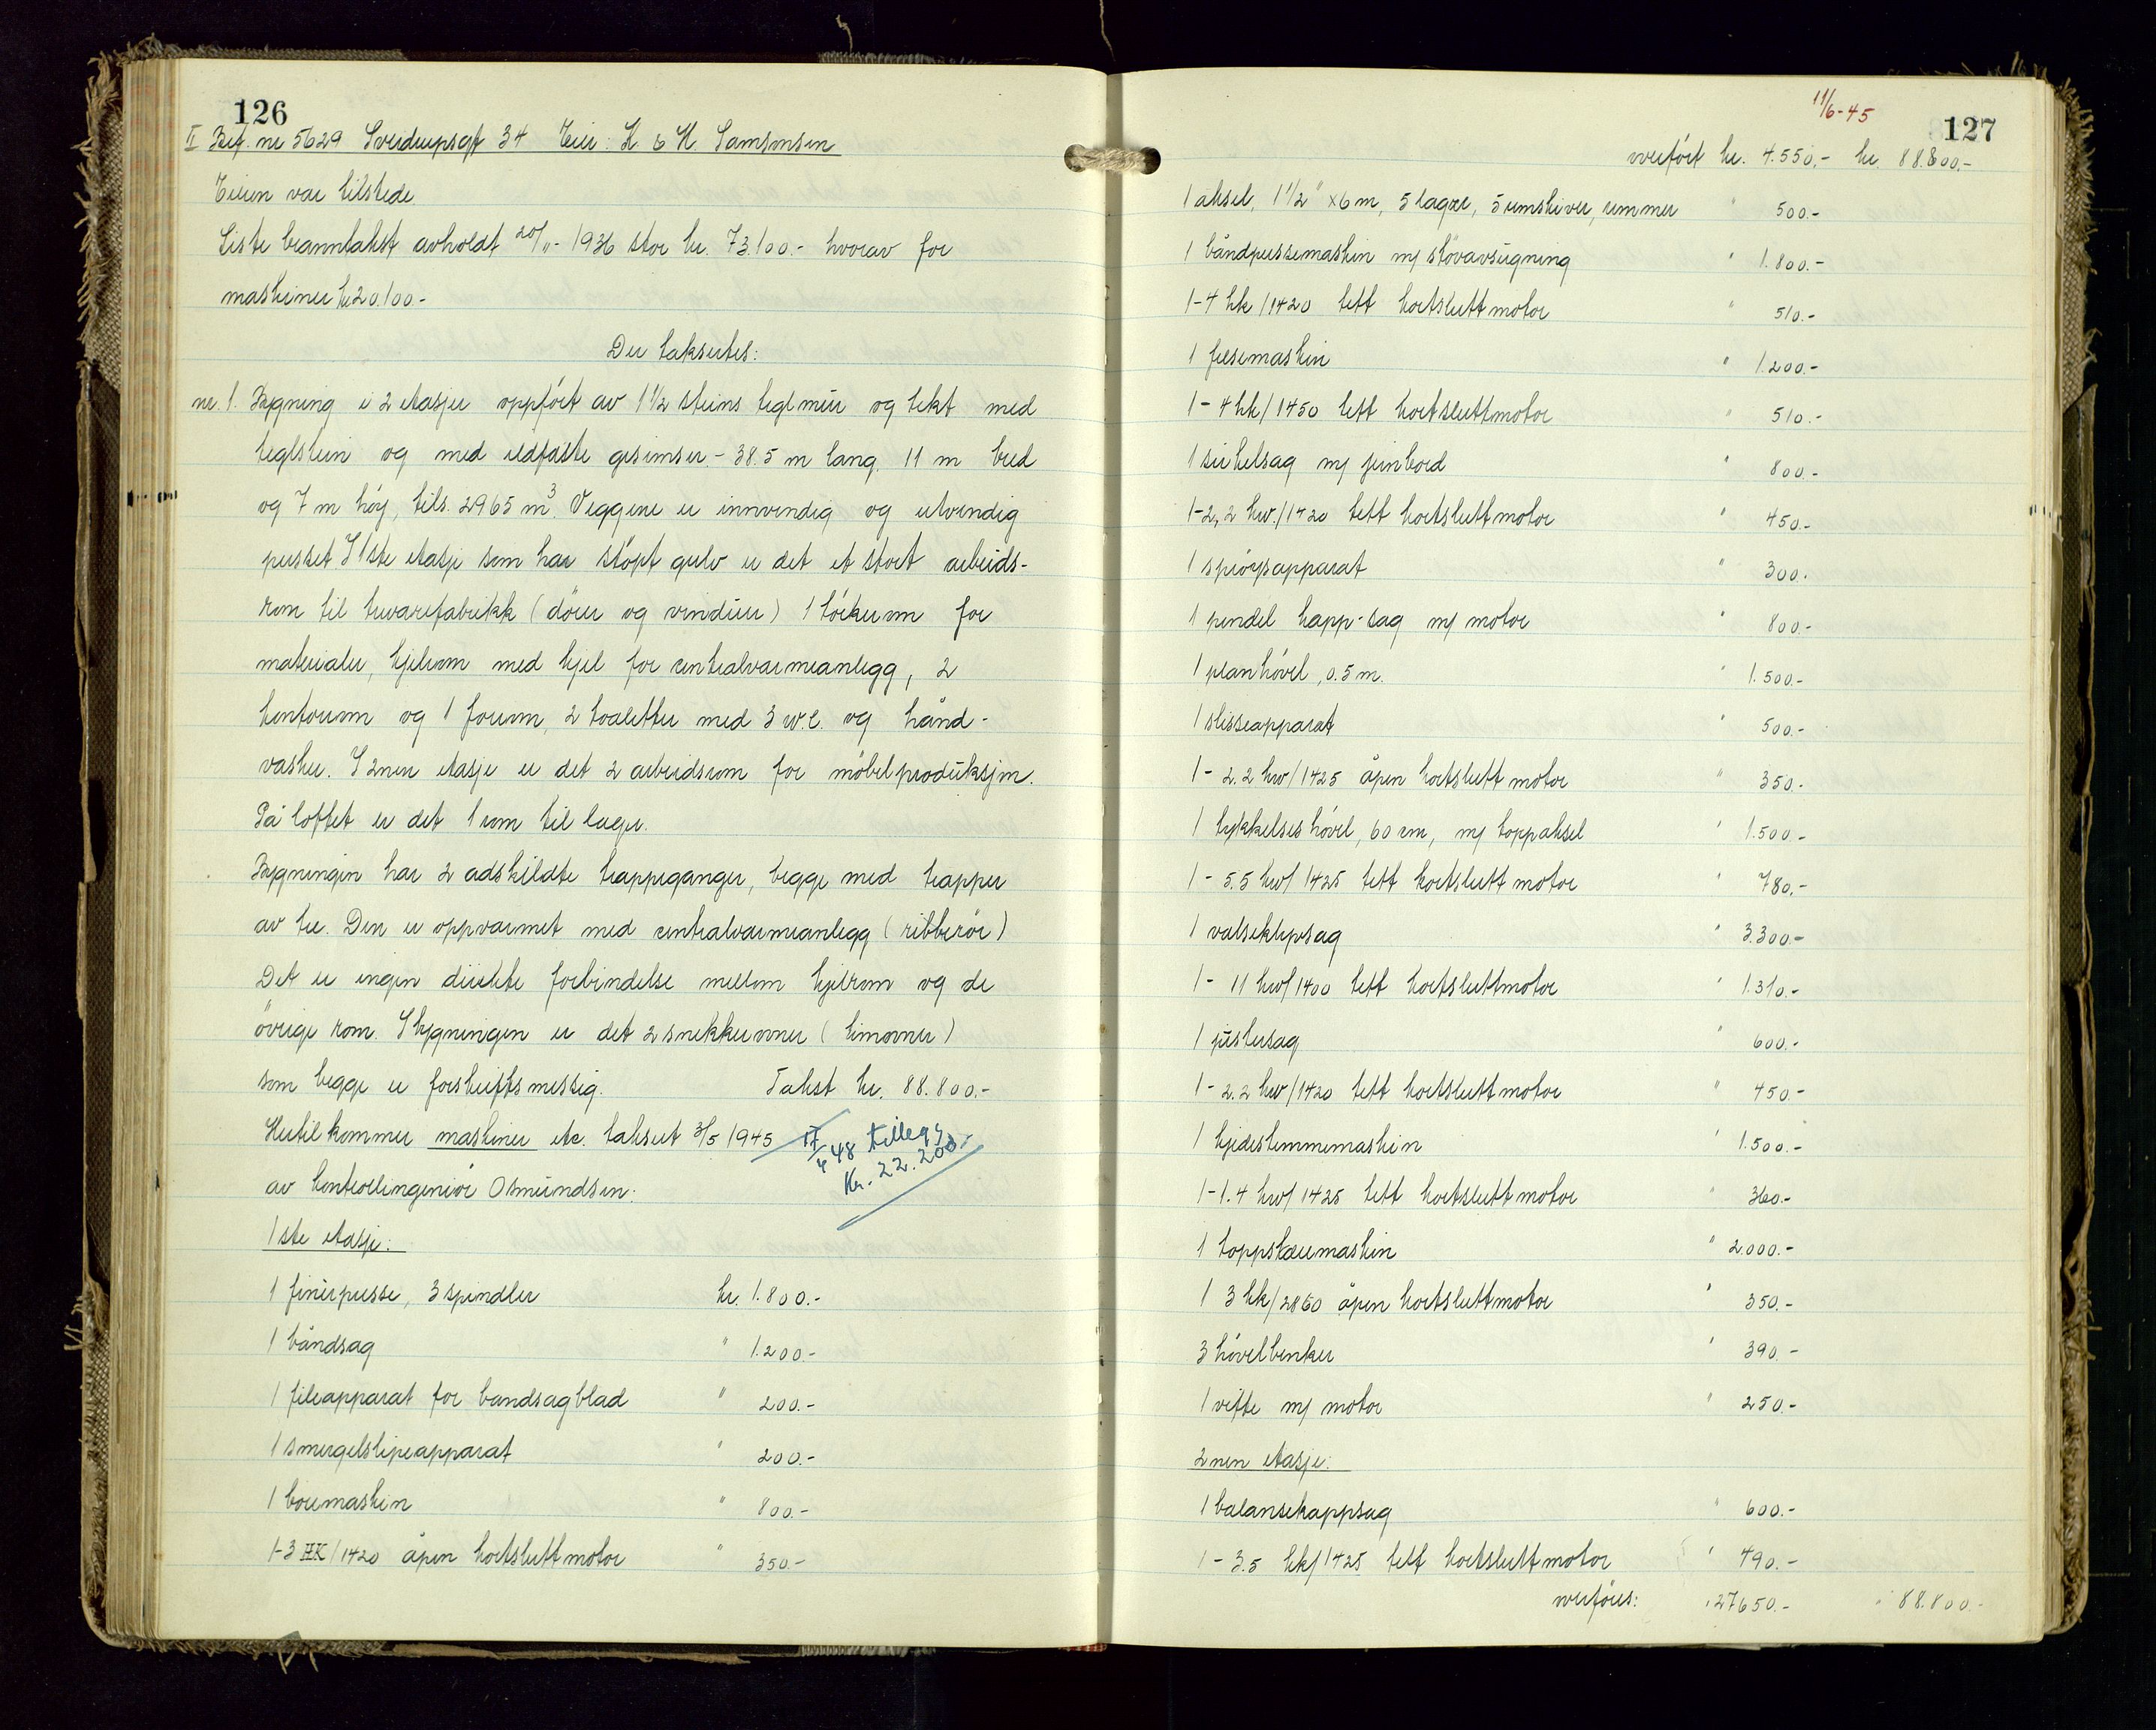 126
II Byg. nr 5629 Sverdrupsgt 34 Eier: K. & H. Samsonsen
Eieren var tilstede
Siste branntakst avholdt 20/11- 1936 stor kr. 73.100.- hvorav for
maskiner kr 20.100-
Der takseres:
nr. 1. Bygning i 2 etasjer oppført av 1 1/2 steins teglmur og tekt med
teglstein og med ildfaste gesimser.- 38.5 m lang, 11 m bred
og 7 m høy, tils. 2965 m3. Veggene er innvendig og utvendig
pusset I 1ste etasje som har støpt gulv er det et stort arbeids-
rom til trevarefabrikk (dører og vinduer) 1 tørkerom for
materialer, kjelrom med kjel for centralvarmeanlegg, 2
kontorrom og 1 forrom, 2 toaletter med 3 w.c. og hånd-
vasker. I 2nen etasje er det 2 arbeidsrom for møbelproduksjon.
På loftet er det 1 rom til lager.
Bygningen har 2 adskildte trappeganger, begge med trapper
av tre. Den er oppvarmet med centralvarmeanlegg (ribberør)
Det er ingen direkte forbindelse mellom kjelrom og de
øvrige rom. I bygningen er det 2 snekkerovner (limovner)
som begge er forskriftsmessig. Takst kr. 88.800.-
Hertil kommer maskiner etc. taksert 3/5 1945
48 tillegg
Kr. 22.200.-
av kontrollingeniør Osmundsen:
1ste etasje:
1 finerpusse, 3 spindler kr. 1.800.-
1 båndsag " 1.200.-
1 fileapparat for bandsagblad " 200.-
1 smergelslipeapparat " 200.-
1 boremaskin " 800.-
1-3 HK/1420 åpen kortslutt motor " 350.-
11/6-45
127
overført kr. 4.550.- kr. 88.800-
1 aksel, 1 1/2" x 6 m, 5 lager, 5 remskiver, remmer " 500.-
1 båndpussemaskin m/ støvavsugning " 1.800.-
1-4 hk/1420 tett kortsluttmotor " 510.-
1 fresemaskin " 1.200.-
1-4 hk/1450 tett kortsluttmotor " 510.-
1 sirkelsag m/ jernbord " 800.-
1-2,2 kw./1420 tett kortsluttmotor " 450.-
1 sprøyteapparat " 300.
1 pendel kapp-sag m/ motor " 800.-
1 planhøvel, 0.5 m. " 1.500.-
1 slisseapparat " 500.-
1- 2.2 kw/1425 åpen kortslutt motor " 350.-
1 tykkelseshøvel, 60 cm, m/ toppaksel " 1.500.-
1- 5.5 kw/1425 tett kortslutt motor " 780.-
1 valseklypsag " 3.300.-
1- 11 kw/1400 tett kortsluttmotor " 1.310.-
1 justersag " 600.-
1- 2.2 kw/1420 tett kortsluttmotor " 450.-
1 kjedestemmemaskin " 1.500.-
1-1.4 kw/1425 tett kortslutt motor " 360.-
1 toppskjæremaskin " 2.000.-
1 3 hk/2860 åpen kortsluttmotor " 350.-
3 høvelbenker " 390.-
1 vifte m/ motor " 250.-
2nen etasje:
1 balansekappsag " 600.-
1- 3.5 hk/1425 tett kortsluttmotor " 490.-
overføres: " 27650.- " 88.800.-